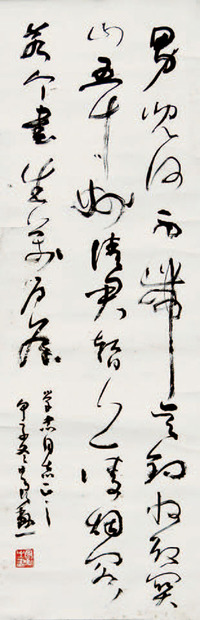 男儿何不带吴钩收取关
山五十州请君暂上凌烟阁
若个书生万户侯
学忠同志正之
甲子冬